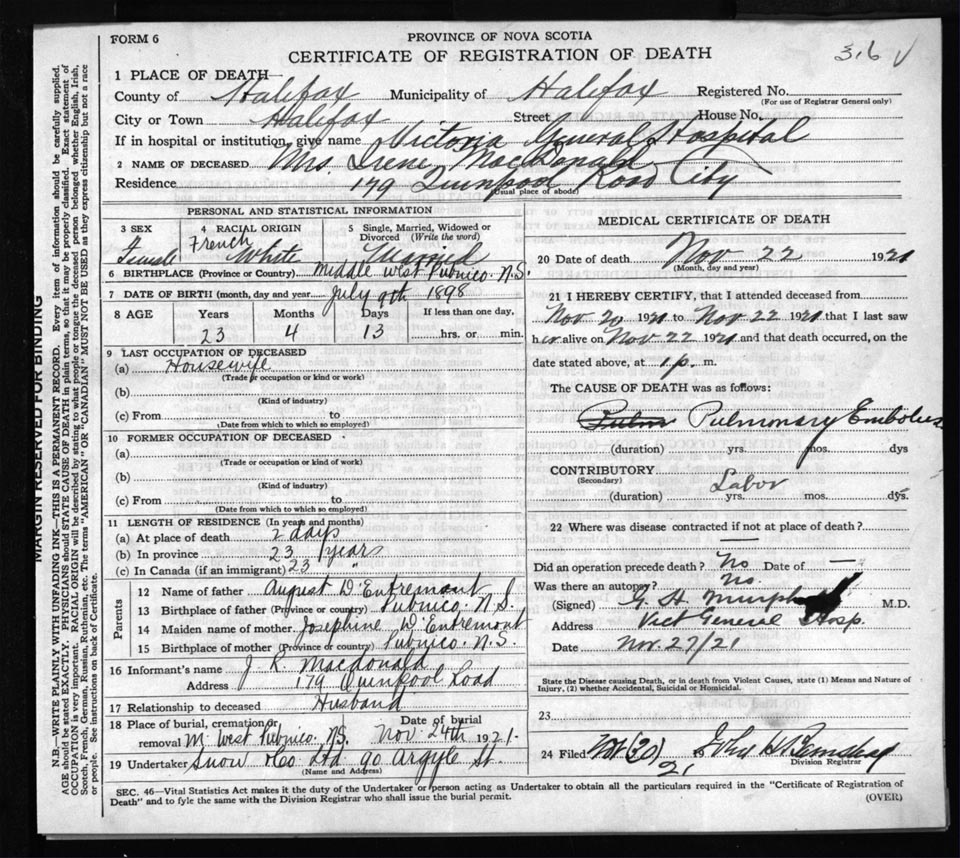 FORM 6
PROVINCE OF NOVA SCOTIA
CERTIFICATE OF REGISTRATION OF DEATH
3.6 √
1 PLACE OF DEATH—
County of Halifax Municipality of Halifax Registered No.
(For use of Registrar General only)
City or Town Halifax Street House No.
If in hospital or institution, give name Victoria General Hospital
2 NAME OF DECEASED Mrs. Irene MacDonald
Residence 179 Quinpool Road City
(Usual place of abode)
PERSONAL AND STATISTICAL INFORMATION
3 SEX 4 RACIAL ORIGIN 5 Single, Married, Widowed or Divorced (Write the word)
Female French White Married
6 BIRTHPLACE (Province or Country) Middle West Pubnico. N.S.
7 DATE OF BIRTH (month, day and year) July 9th 1898
8 AGE Years Months Days If less than one day,
23 4 13 hrs. or min.
9 LAST OCCUPATION OF DECEASED
(a) Housewife
(Trade or occupation or kind or work)
(b)
(Kind of industry)
(c) From to
(Date from which to which so employed)
10 FORMER OCCUPATION OF DECEASED
(a)
(Trade or occupation or kind of work)
(b)
(Kind of industry)
(c) From to
(Date from which to which so employed)
11 LENGTH OF RESIDENCE (In years and months)
(a) At place of death 2 days
(b) In province 23 years
(c) In Canada (if an immigrant) 23 "
Parents
12 Name of father August D'Entremont
13 Birthplace of father (Province or country) Pubnico. N.S.
14 Maiden name of mother Josephine D'Entremont
15 Birthplace of mother (Province or country) Pubnico. N.S.
16 Informant's name J. R. Macdonald
Address 179 Quinpool Road
17 Relationship to deceased Husband
18 Place of burial, cremation or removal M. West Pubnico. N.S. Date of burial Nov. 24th 1921.
19 Undertaker Snow & Co Ltd 90 Argyle St.
(Name and Address)
MEDICAL CERTIFICATE OF DEATH
20 Date of death Nov 22 1921
(Month, day and year)
21 I HEREBY CERTIFY, that I attended deceased from
Nov 20 1921 to Nov 22 1921 that I last saw
her alive on Nov 22 1921 and that death occurred, on the
date stated above, at 1 p. m.
The CAUSE OF DEATH was as follows:
Pulm Pulmonary Embolus
(duration) yrs. mos. dys
CONTRIBUTORY Labor
(Secondary)
(duration) yrs. mos. dys.
22 Where was disease contracted if not at place of death?
—
Did an operation precede death? No Date of —
Was there an autopsy? No.
(Signed) G. H. Murphy M.D.
Address Vict General Hosp.
Date Nov. 27/21
State the Disease causing Death, or in death from Violent Causes, state (1) Means and Nature of
Injury, (2) whether Accidental, Suicidal or Homicidal.
23
24 Filed 30 21
Division Registrar
SEC. 46—Vital Statistics Act makes it the duty of the Undertaker or person acting as Undertaker to obtain all the particulars required in the "Certificate of Registration of
Death" and to fyle the same with the Division Registrar who shall issue the burial permit.
(OVER)
MARGIN RESERVED FOR BINDING
N.B.—WRITE PLAINLY WITH UNFADING INK—THIS IS A PERMANENT RECORD. Every item of information should be carefully supplied.
AGE should be stated EXACTLY. PHYSICIANS should STATE CAUSE OF DEATH in plain terms, so that it may be properly classified. Exact statement of
OCCUPATION is very important. RACIAL ORIGIN will be described by stating to what people or tongue the deceased person belonged whether English, Irish,
Scotch, French, German, Russian, Ruthenian, etc. The terms "AMERICAN" OR "CANADIAN" MUST NOT BE USED as they express citizenship but not a race
or people. See instructions on back of Certificate.